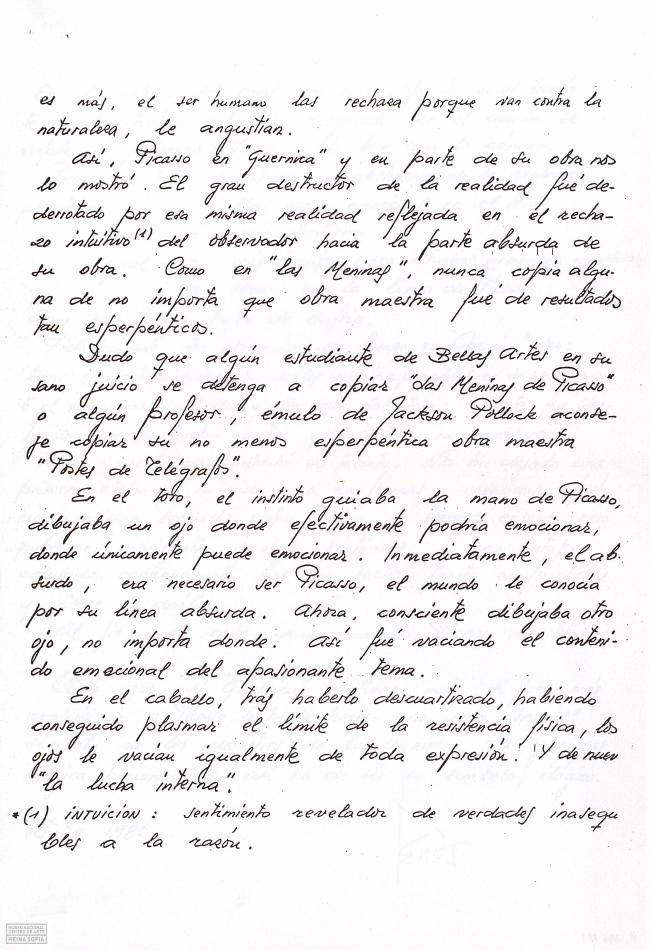 es más, el ser humano las rechaza porque van contra la
naturaleza, le angustian.
Así, Picasso en "Guernica" y en parte de su obra nos
lo mostró. El gran destructor de la realidad fué de-
derrotado por esa misma realidad reflejada en el recha-
zo intuitivo (1) del observador hacia la parte absurda de
su obra. Como en "las Meninas", nunca copia algu-
na de no importa que obra maestra fué de resultados
tan esperpénticos.
Dudo que algún estudiante de Bellas Artes en su
sano juicio se detenga a copiar "las Meninas de Picasso"
o algún profesor, émulo de Jackson Pollock aconse-
je copiar su no menos esperpéntica obra maestra
"Postes de Telégrafos".
En el toro, el instinto guiaba la mano de Picasso,
dibujaba un ojo donde efectivamente podría emocionar,
donde únicamente puede emocionar. Inmediatamente, el ab-
surdo, era necesario ser Picasso, el mundo le conocía
por su línea absurda. Ahora, consciente dibujaba otro
ojo, no importa donde. Así fué vaciando el conteni-
do emocional del apasionante tema.
En el caballo, trás haberlo descuartizado, habiendo
conseguido plasmar el límite de la resistencia física, los
ojos le vacían igualmente de toda expresión. Y de nuevo
"la lucha interna".
*(1) INTUICION: sentimiento revelador de verdades inasequi
bles a la razón.
MUSEO NACIONAL
CENTRO DE ARTE
REINA SOFIA